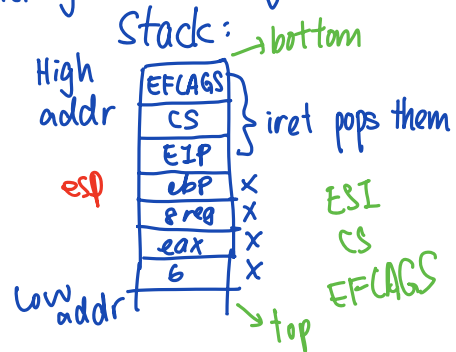 Stack:
bottom
High
addr
EFLAGS
CS
EIP
iret pops them
esp
ebp x
8reg x
eax x
6 x
ESI
CS
EFLAGS
Low
addr
top